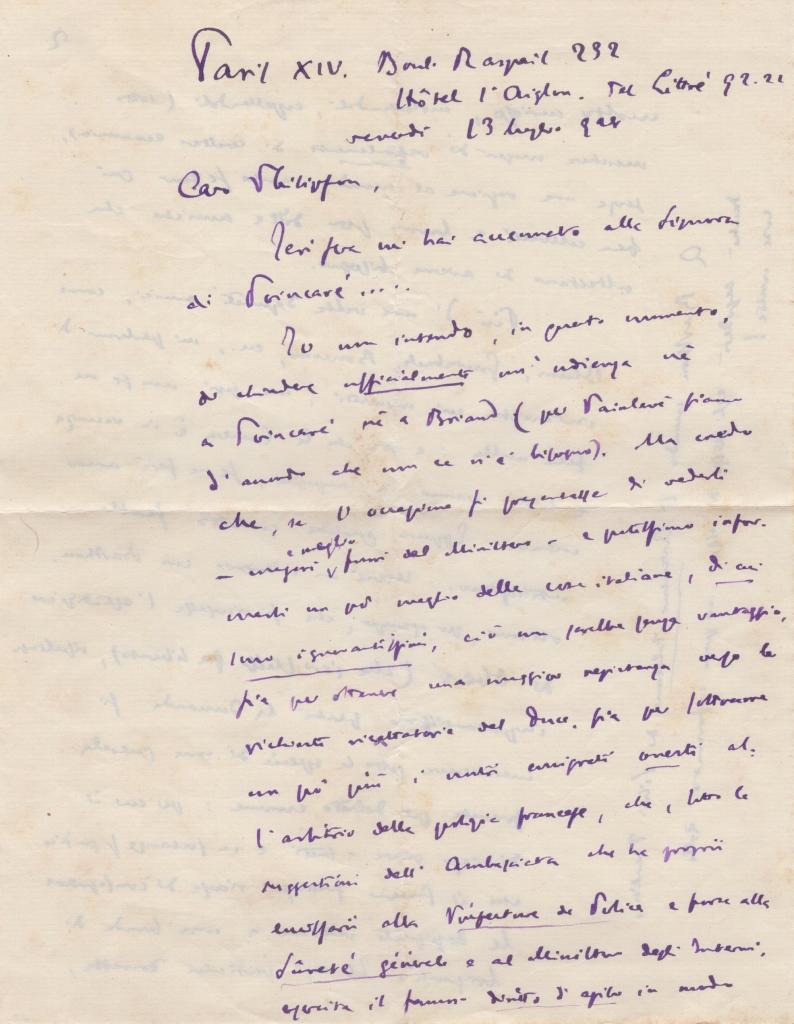 Paris XIV. Boul. Raspail 232
Hôtel l'Aiglon. Tel Littré 92.22
venerdì 13 luglio 928
Caro Philipson,
Ieri sera mi hai accennato alla Signora
di Poincaré.....
Io non intendo, in questo momento,
di chiedere ufficialmente un'udienza nè
a Poincaré nè a Briand (per Painlevé siamo
d'accordo che non ce n'è bisogno). Ma credo
che, se l'occasione si presentasse di vederli
– magari e meglio fuori del Ministero – e potessimo infor-
marli un pò meglio delle cose italiane, di cui
sono ignorantissimi, ciò non sarebbe senza vantaggio,
sia per ottenere una maggior resistenza verso le
richieste ricattatorie del Duce, sia per sottrarre
un pò più i nostri emigrati onesti al-
l'arbitrio della polizia francese, che, sotto le
suggestioni dell'Ambasciata che ha proprii
emissarii alla Préfecture de Police e forse alla
Sûreté générale e al Ministero degli Interni,
esercita il famoso diritto di asilo in modo